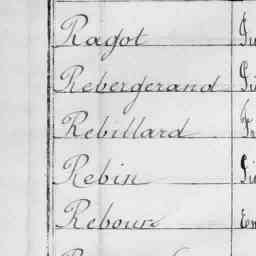 Ragot
Rebergerand
Rebillard
Rebin
Rebours